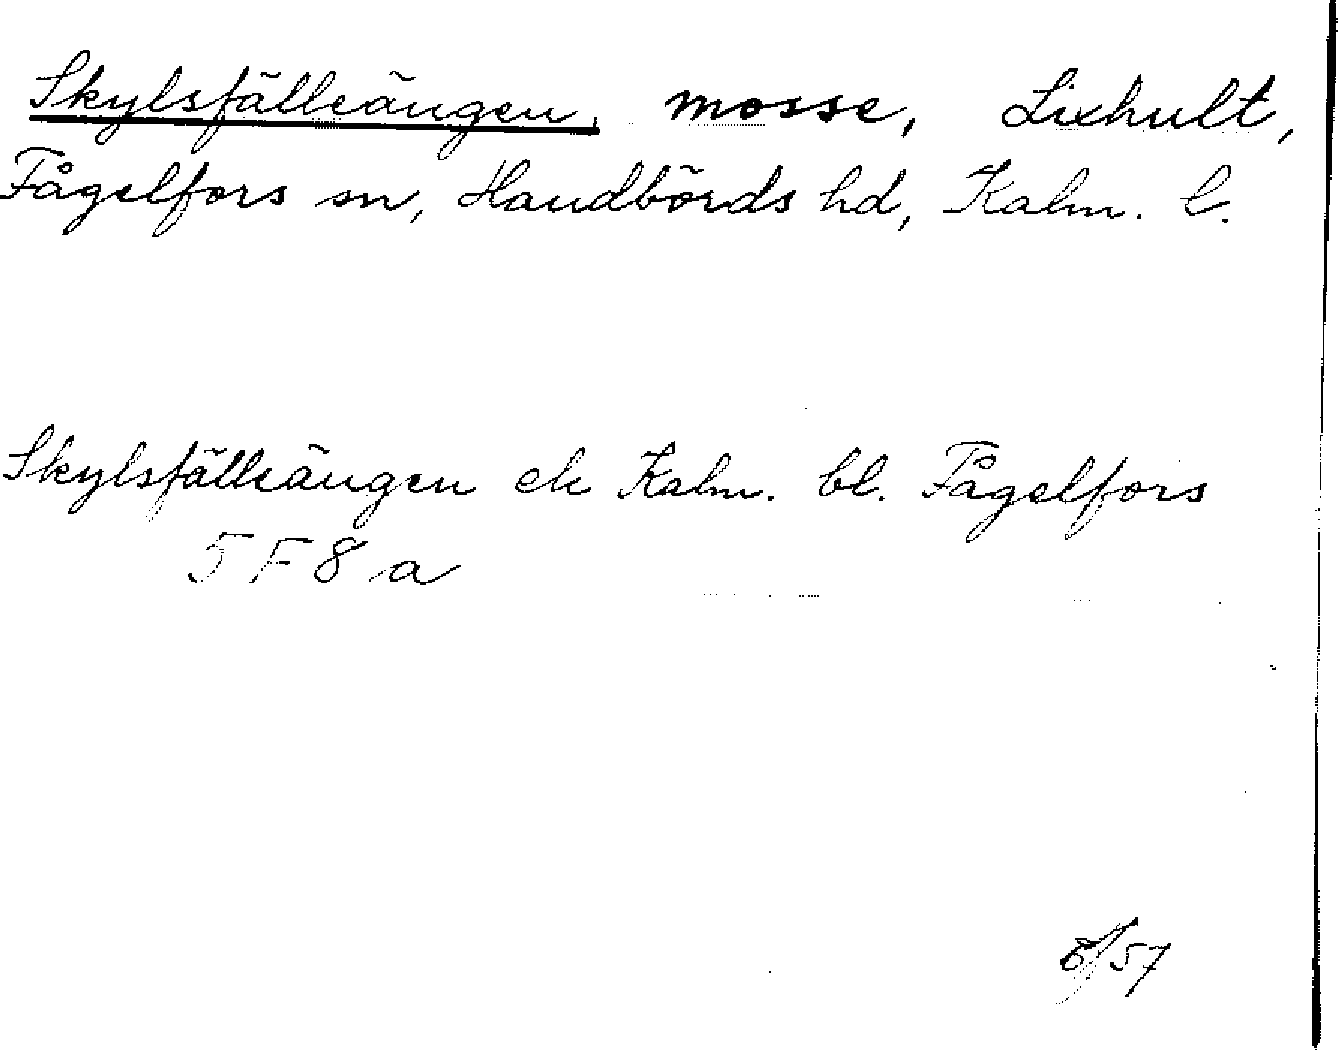 Skylsfälleängen, mosse, Lixhult,
Fågelfors sn, Handbörds hd, Kalm. l.
Skylsfälleängen ek Kalm. bl. Fågelfors
5 F 8 a
/57